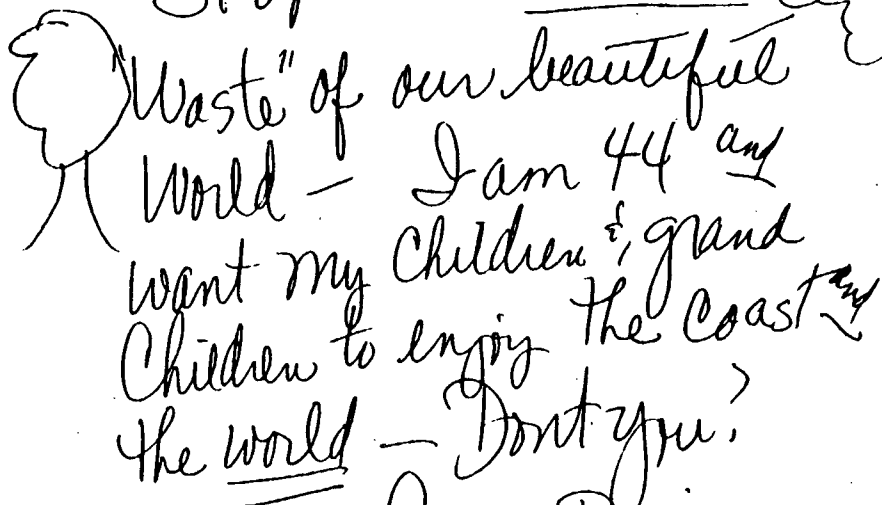 "Waste" of our beautiful
World — I am 44 and
want my Children & grand
Children to enjoy the Coast and
the world — Dont you?